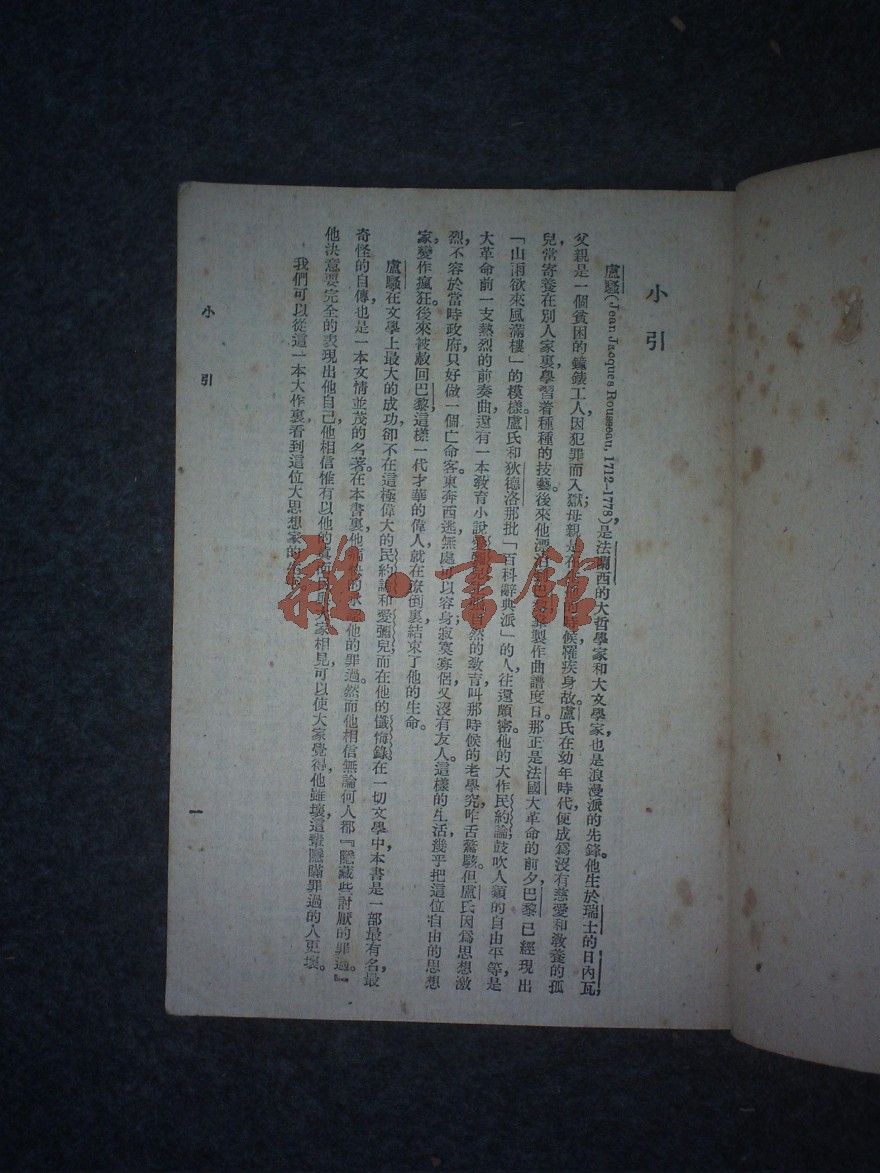 小引
盧騷(Jean Jacques Rousseau, 1712–1778)，是法蘭西的大哲學家和大文學家，也是浪漫派的先鋒。他生於瑞士的日內瓦，
父親是一個貧困的鐘錶工人，因犯罪而入獄；母親是在時候，罹疾身故。盧氏在幼年時代，便成爲沒有慈愛和教養的孤
兒，常寄養在別人家裏，學習着種種的技藝。後來他漂製作曲譜度日。那正是法國大革命的前夕，巴黎已經現出
「山雨欲來風滿樓」的模樣。盧氏和狄德洛那批「百科辭典派」的人往還頗密。他的大作民約論，鼓吹人類的自由平等，是
大革命前一支熱烈的前奏曲，還有一本教育小說然的教育，叫那時候的老學究咋舌驚駭。但盧氏因爲思想激
烈，不容於當時政府，只好做一個亡命客。東奔西逃，無處可以容身；寂寞寡侶，又沒有友人。這樣的生活，幾乎把這位自由的思想
家，變作瘋狂。後來被赦回巴黎，這樣一代才華的偉人，就在潦倒裏結束了他的生命。
盧騷在文學上最大的成功，卻不在這極偉大的民約論和愛彌兒，而在他的懺悔錄。在一切文學中，本書是一部最有名，最
奇怪的自傳，也是一本文情並茂的名著。在本書裏，他的他的罪過。然而他相信無論何人都『隱藏些討厭的罪過。』
他決意要完全的表現出他自己，他相信惟有以他的真大家相見，可以使大家覺得，他雖壞，這輩隱瞞罪過的人更壞。
我們可以從這一本大作裏，看到這位大思想家的
小引
一
雜·書館